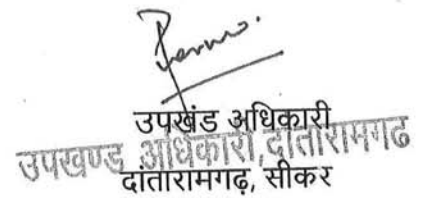 उपखंड अधिकारी
उपखण्ड अधिकारी, दांतारामगढ
दांतारामगढ़, सीकर